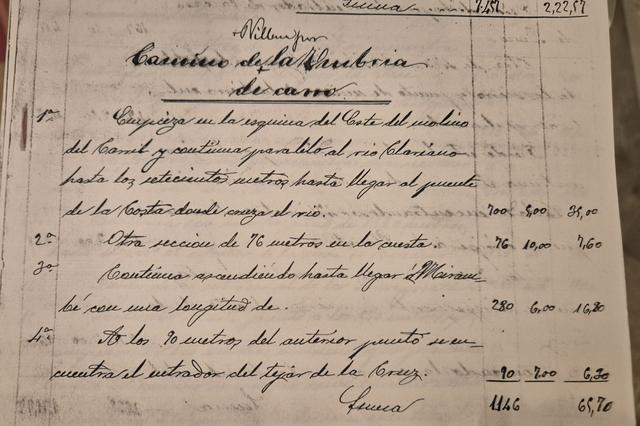 Suma 7,151 2,22,57
Camino de la Umbria
de carro.
1ª Empieza en la esquina del Este del molino
del Carril y continua paralelo al rio Clariano
hasta los setecientos metros hasta llegar al puente
de la Costa donde cruza el rio. 700 5,00 35,00
2ª Otra seccion de 76 metros en la cuesta. 76 10,00 7,60
3ª Continua ascendiendo hasta llegar
bé con una longitud de. 280 6,00 16,80
4ª A los 90 metros del anterior punto se en-
cuentra el entrador del tejar de la Cruz. 90 7,00 6,30
Suma 1146 65,70